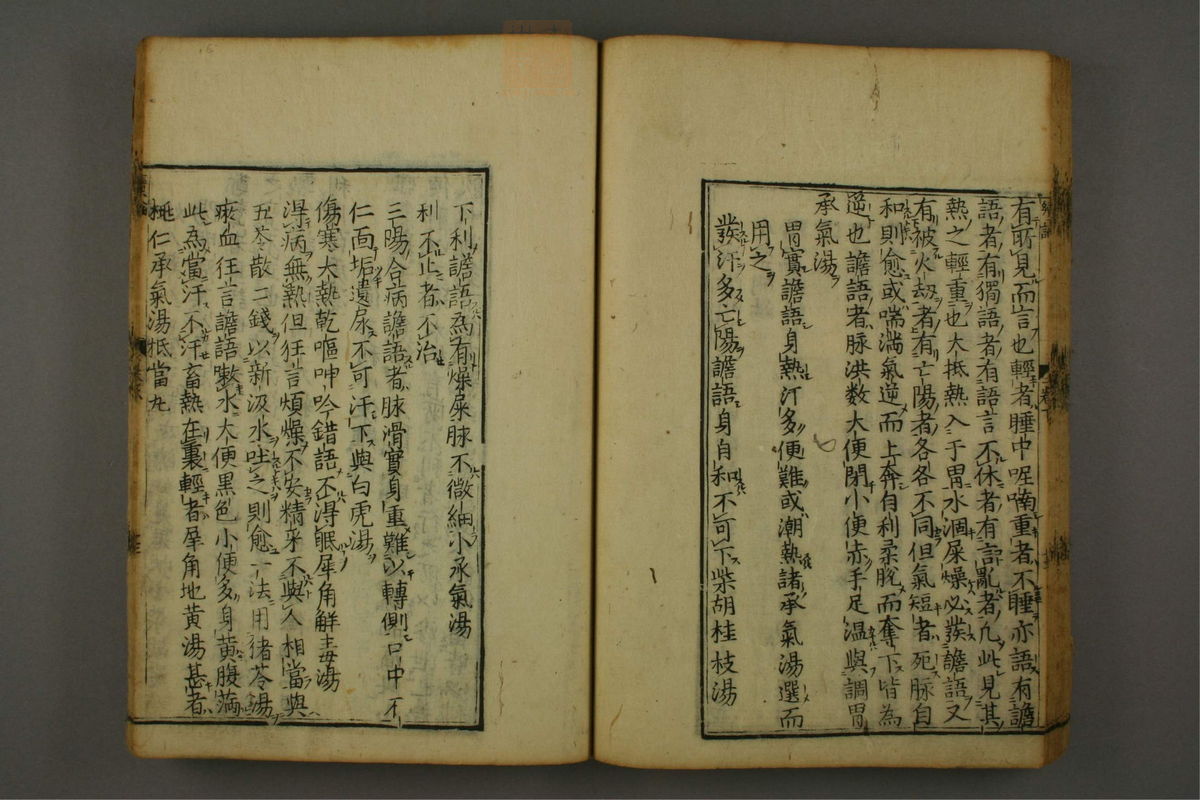 有所見而言也輕者睡中呢喃重者不睡亦語有譫
語者有獨語者有語言不休者有言亂者凡此見其
熱之輕重也大抵熱入于胃水涸屎燥必發譫語又
有被火劫者有亡陽者各各不同但氣短者死脉自
和則愈或喘滿氣逆而上奔自利柔脫而奪下皆為
逆也譫語者脉洪数大便閉小便赤手足温與調胃
承氣湯
胃實譫語身熱汗多便難或潮熱諸承氣湯選而
用之
發汗多亡陽譫語身自和不可下柴胡桂枝湯
下利譫語為有燥屎脉不微細小承氣湯
利不止者不治
三陽合病譫語者脉滑實身重難以轉側口中不
仁面垢遺尿不可汗下與白虎湯
傷寒大熱乾嘔呻吟錯語不得眠犀角解毒湯
得病無熱但狂言煩燥不安精采不與人相當與
五苓散二錢以新汲水吐之則愈一法用猪苓湯
瘀血狂言譫語嗽水大便黒色小便多身黄腹滿
此為當汗不汗畜熱在裏輕者犀角地黄湯甚者
桃仁承氣湯抵當丸